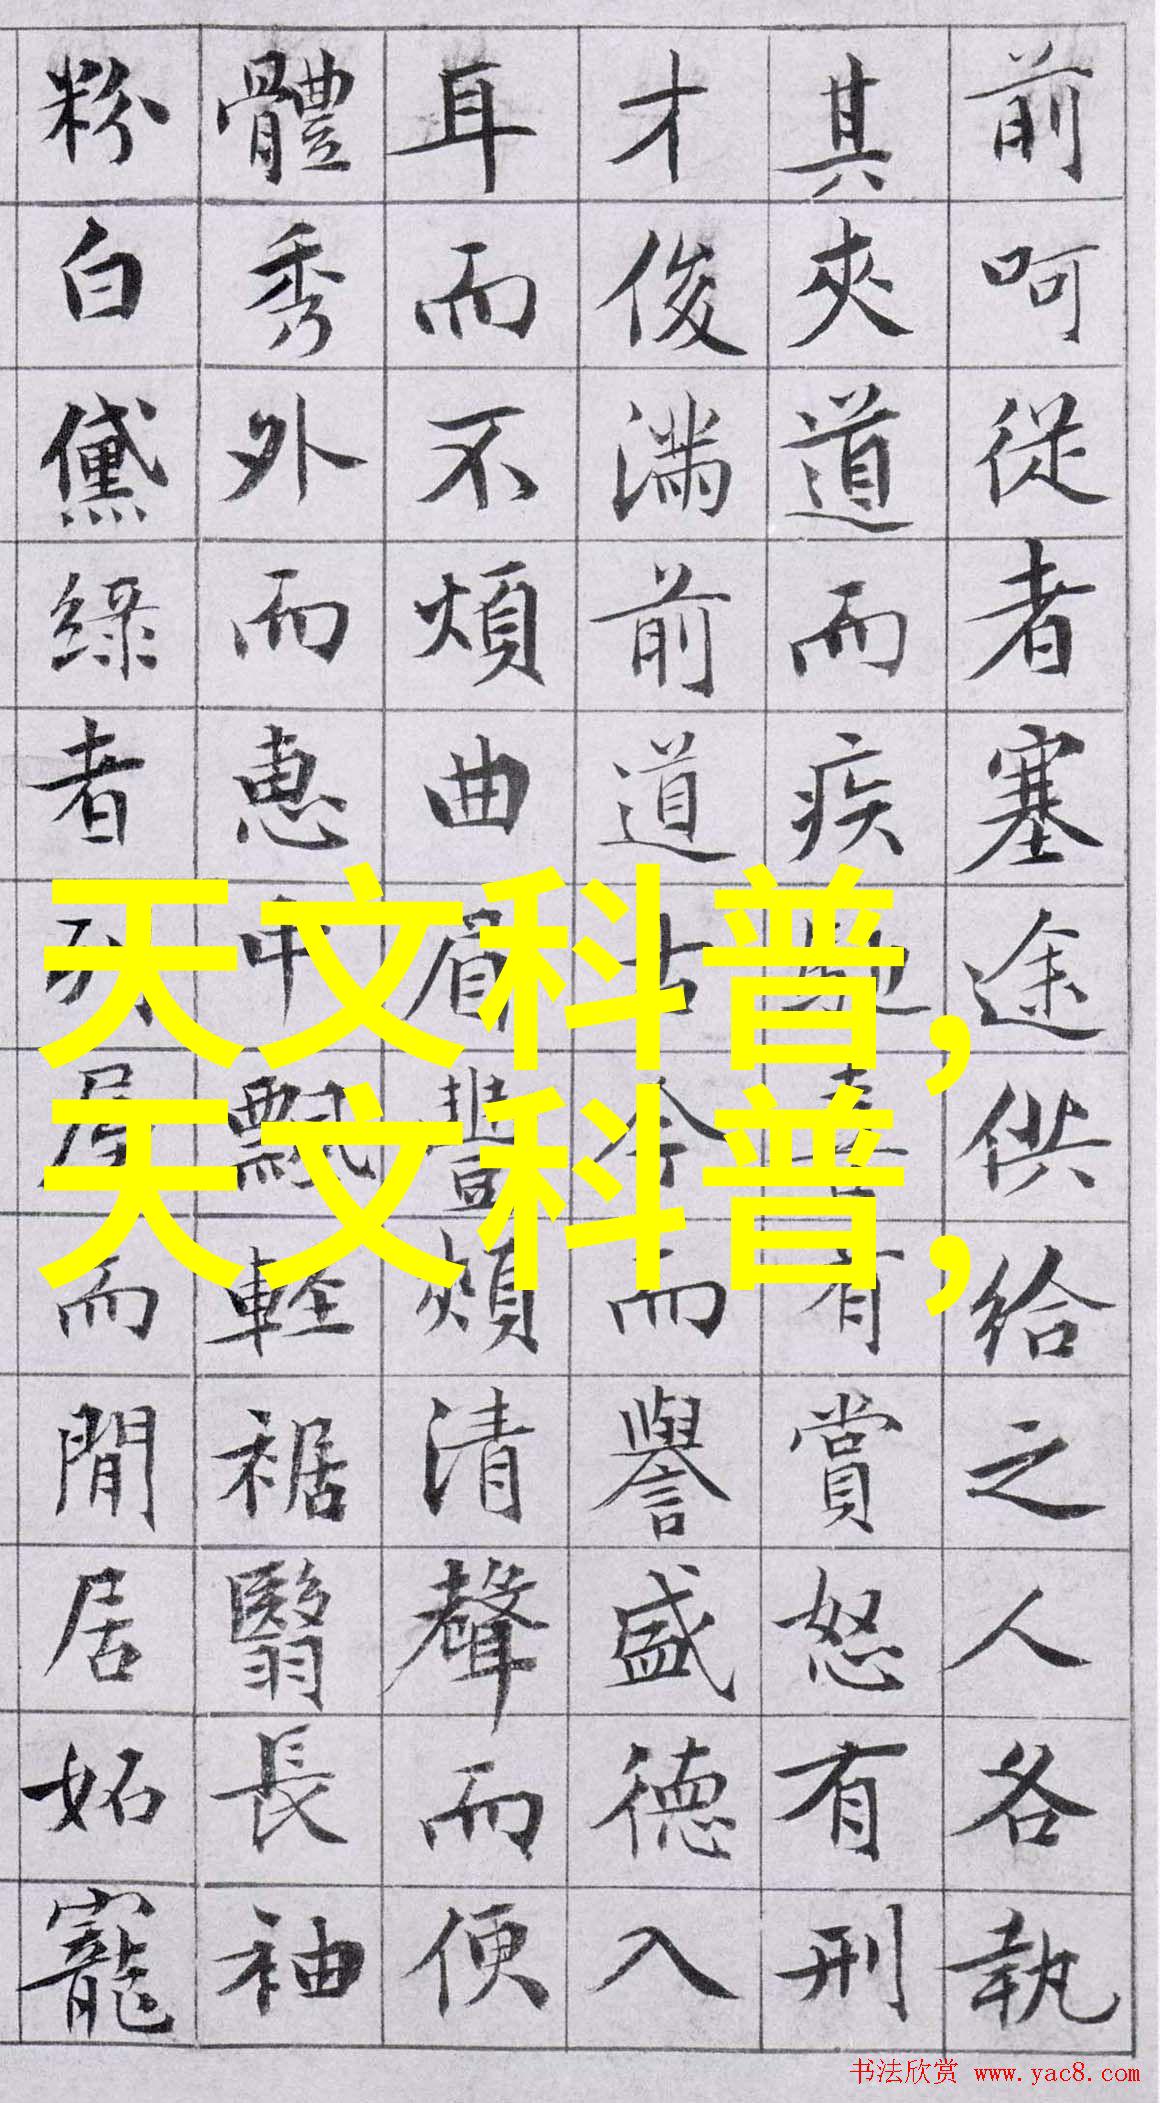 前呵從者塞途供給之人各執
其夾道而疾馳喜有賞怒有刑
才俊满前道古今而譽盛德入
耳而不煩曲眉豐頰清聲而便
體秀外而惠中飄輕裾翳長袖
粉白黛綠者列屋而閒居妬寵
天文科普,
天文科普,
书法欣赏 www.yac8.com